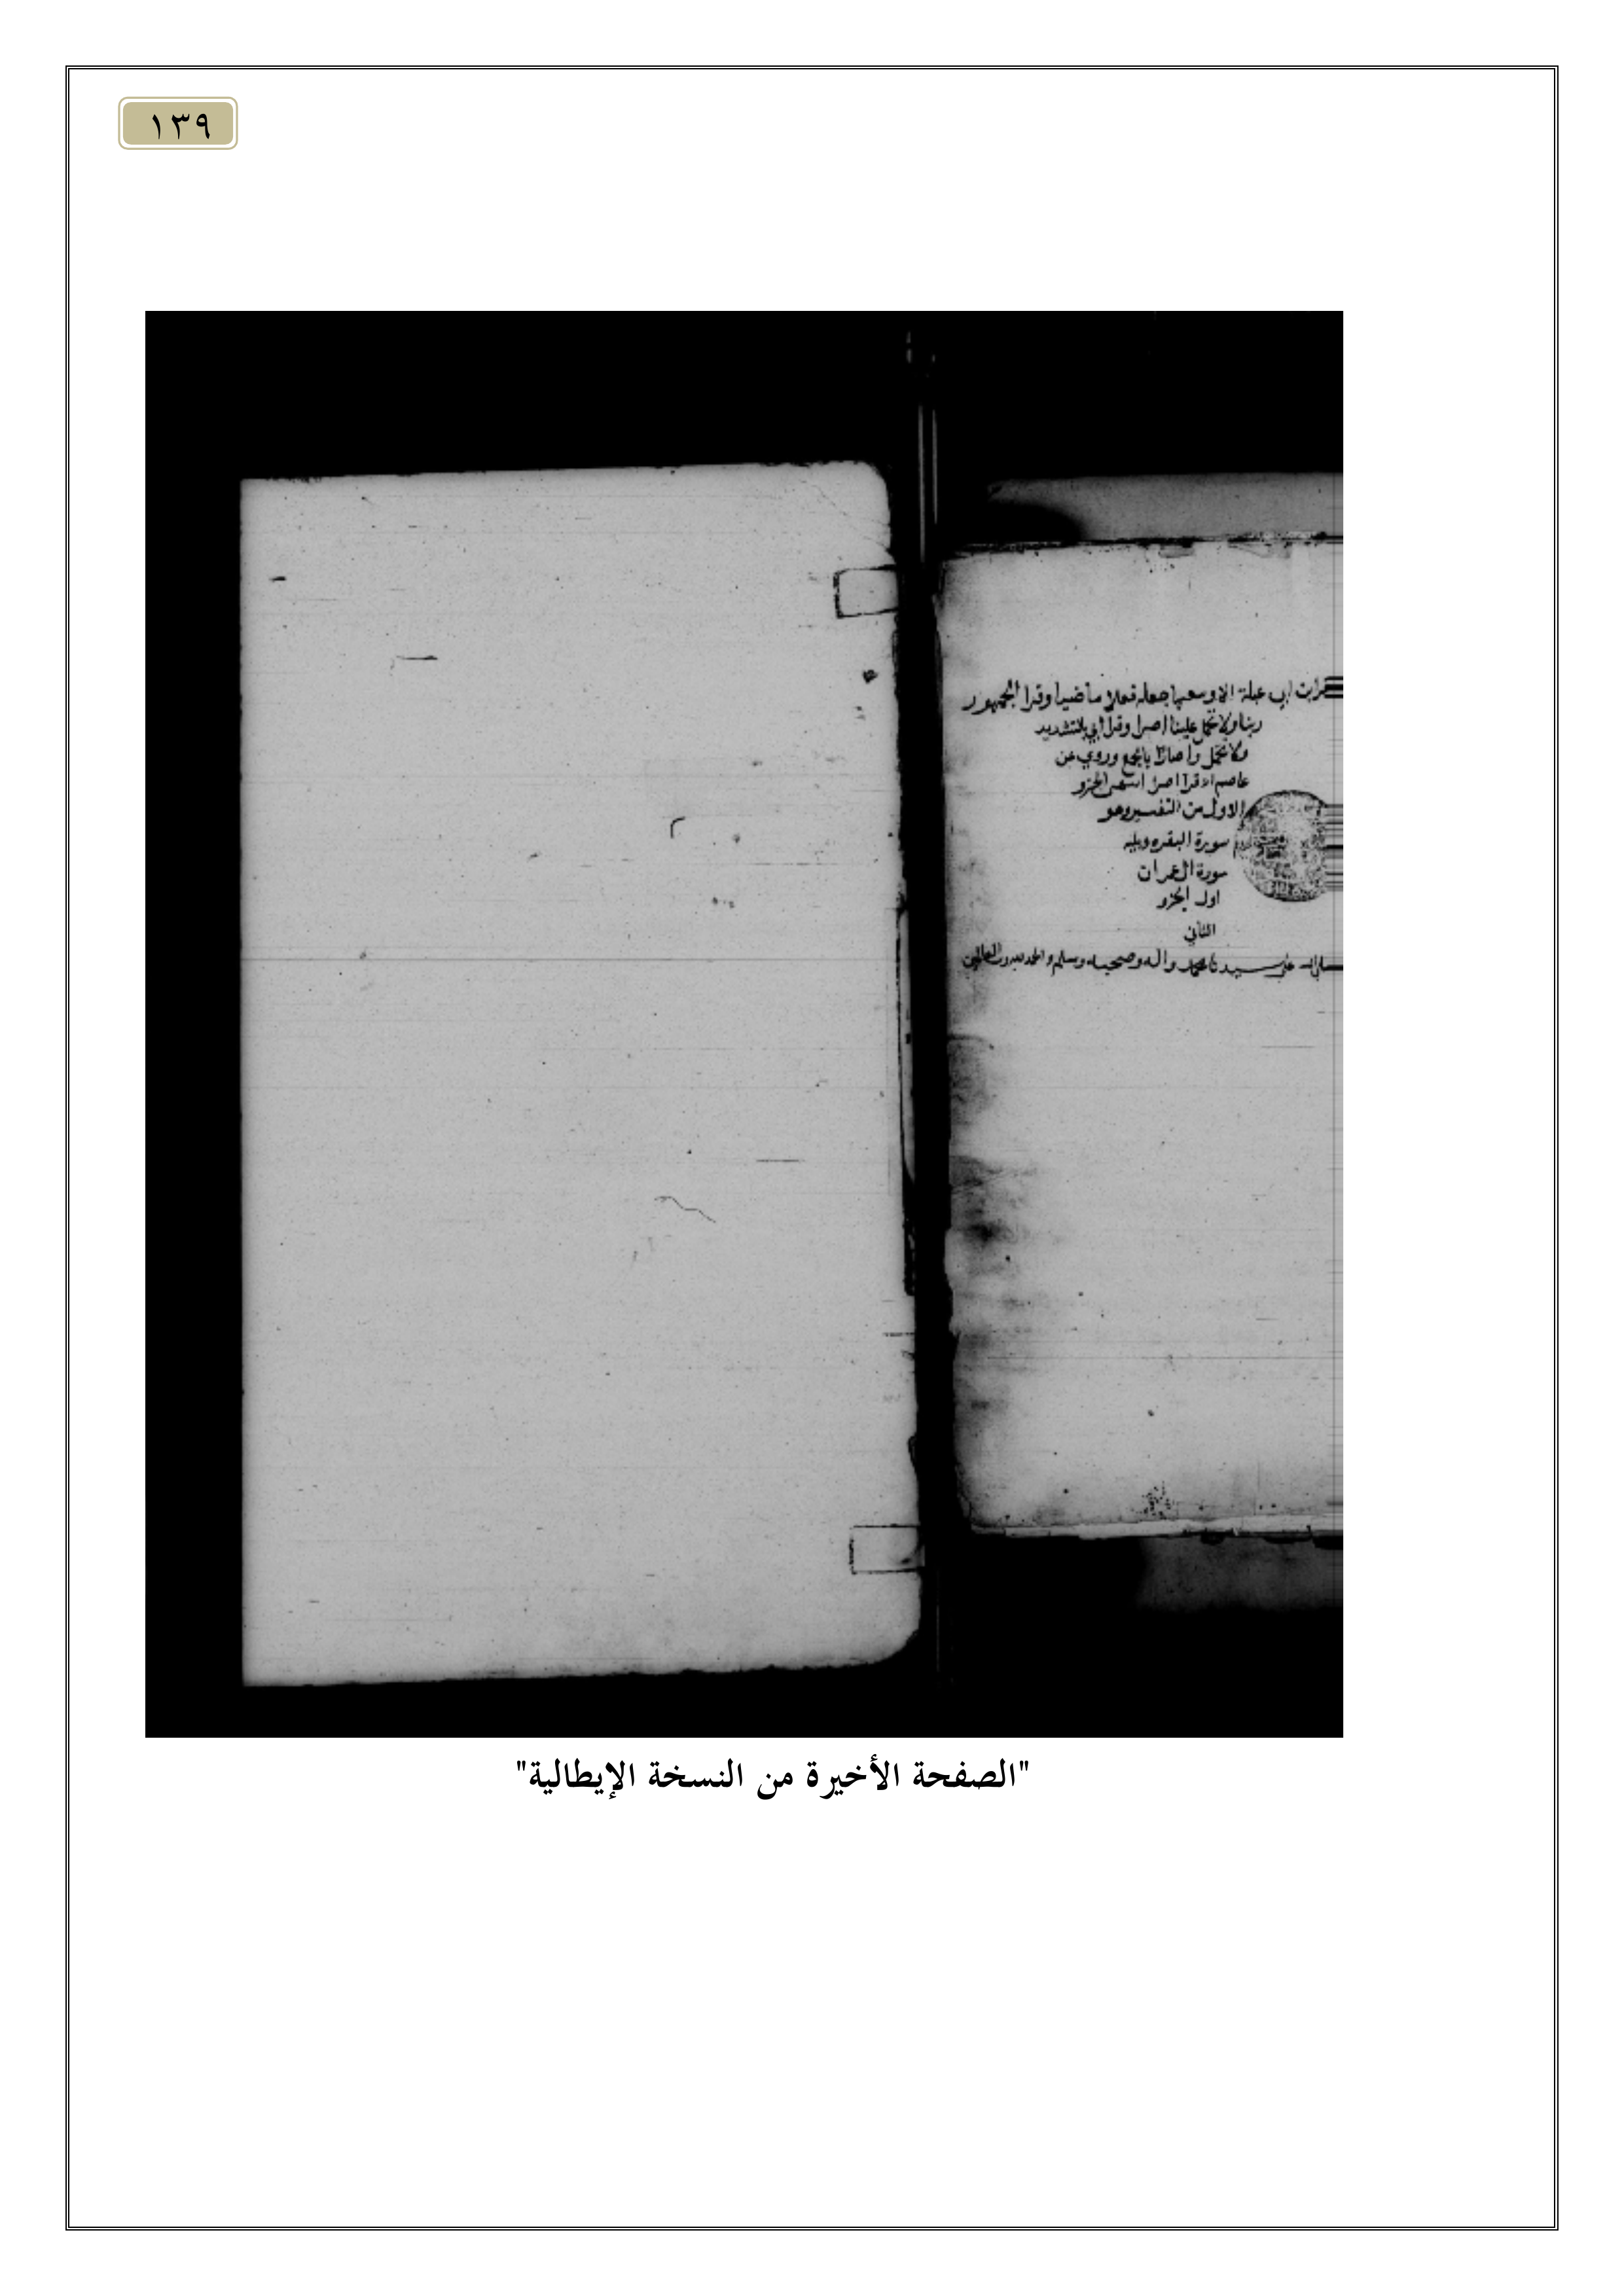 ١٣٩
ابي عبلة الا وسعها جعله فعلا ماضيا وقرا الجمهور
ربنا ولا تحمل علينا اصرا وقرا ابي بالتشديد
ولا تحمل واصارا بالجمع وروي عن
عاصم انه قرا اصرا انتهى الجزو
الاول من التفسير وهو
سورة البقره ويليه
سورة ال عمران
اول الجزو
الثاني
على سيدنا محمد واله وصحبه وسلم والحمد لله رب العالمين
"الصفحة الأخيرة من النسخة الإيطالية"